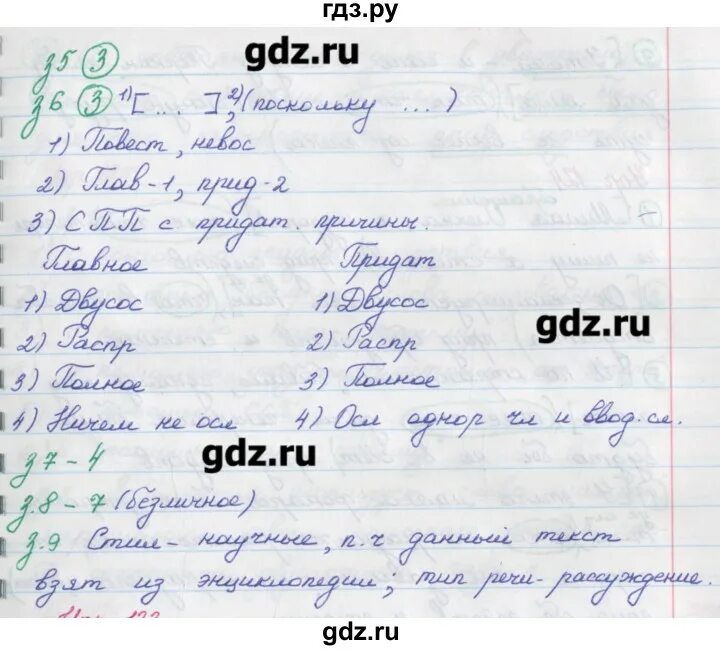 гдз.ру
gdz.ru
з5 ③
з6 ③ 1)[... ], 2)(поскольку ...)
1) Повест, невос
2) Глав-1, прид-2
3) СПП с придат. причины.
Главное Придат
1) Двусос 1) Двусос
gdz.ru
2) Распр 2) Распр
3) Полное 3) Полное
4) Ничем не осл 4) Осл однор чл и ввод.сл.
gdz.ru
з7-4
з.8-7 (безличное)
з.9 Стил- научные, п.ч данный текст
взят из энциклопедии; тип речи- рассуждение.
gdz.ru